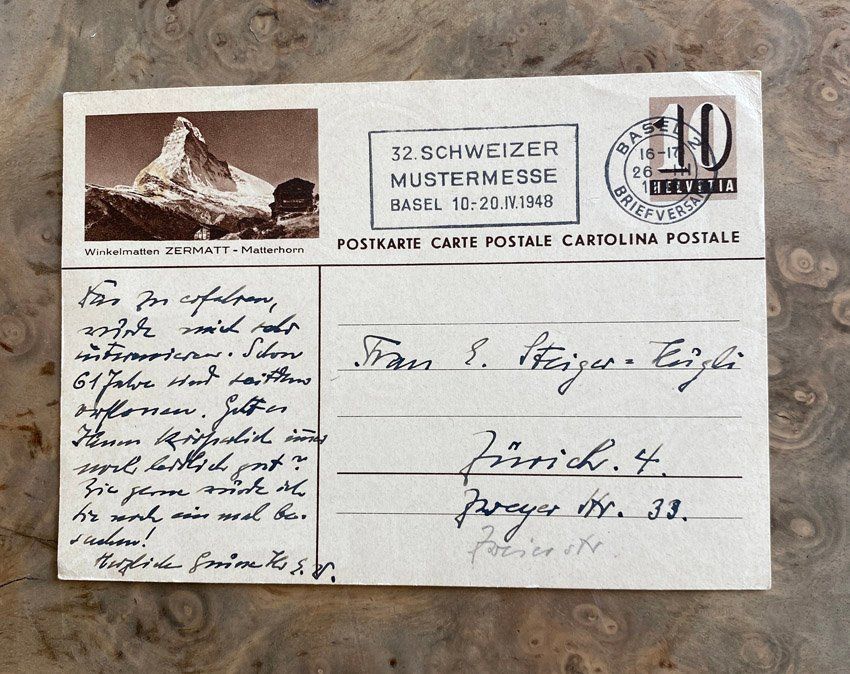 32. SCHWEIZER
MUSTERMESSE
BASEL 10.-20.IV.1948
BASEL 2
16-17
26
BRIEFVERSAND
10
HELVETIA
Winkelmatten ZERMATT - Matterhorn
POSTKARTE CARTE POSTALE CARTOLINA POSTALE
Das zu erfahren,
würde mich sehr
interessieren. Schon
61 Jahre sind seitdem
verflossen. Geht es
Ihnen körperlich immer
noch leidlich gut?
Wie gerne würde ich
Sie noch ein mal be-
suchen!
Herzliche Grüsse
Frau E. Steiger=Hügli
Zürich. 4.
Zweyer Str. 33.
Zweierstr.